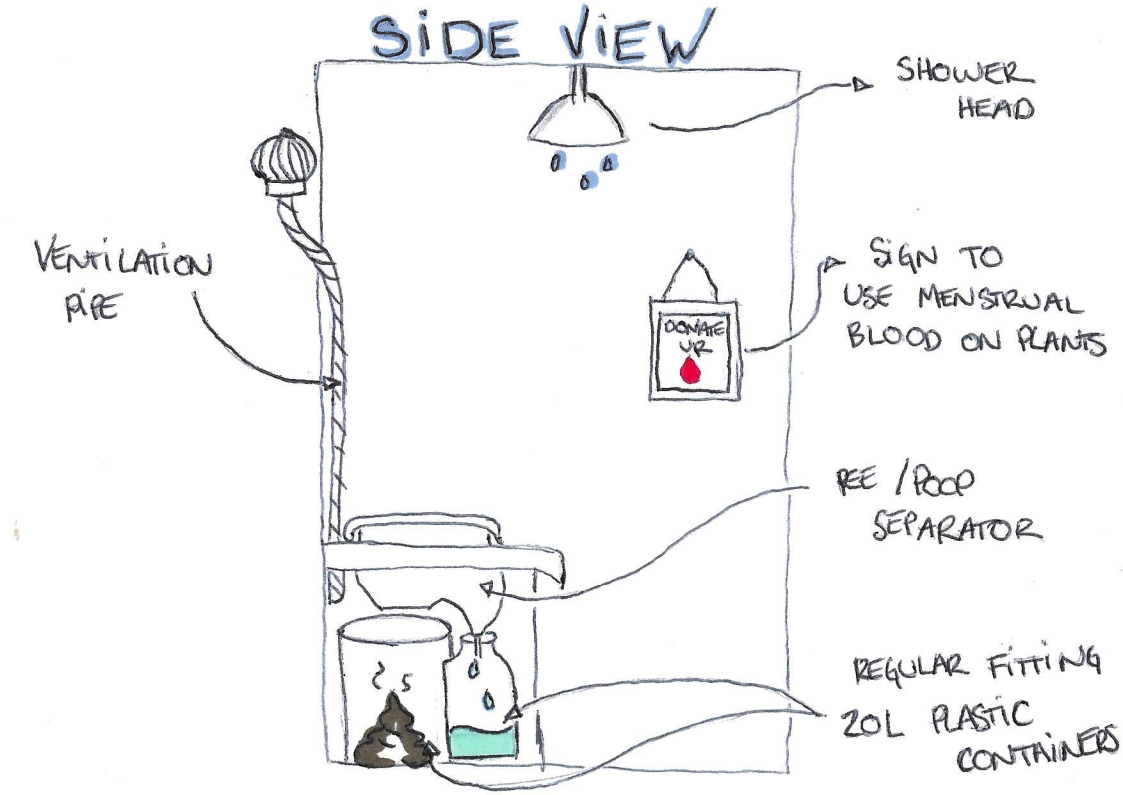 SiDE ViEW
SHOWER
HEAD
VENTiLATiON
PiPE
SiGN TO
USE MENSTRUAL
BLOOD ON PLANTS
DONATE
UR
PEE / POOP
SEPARATOR
REGULAR FiTTiNG
20L PLASTiC
CONTAiNERS